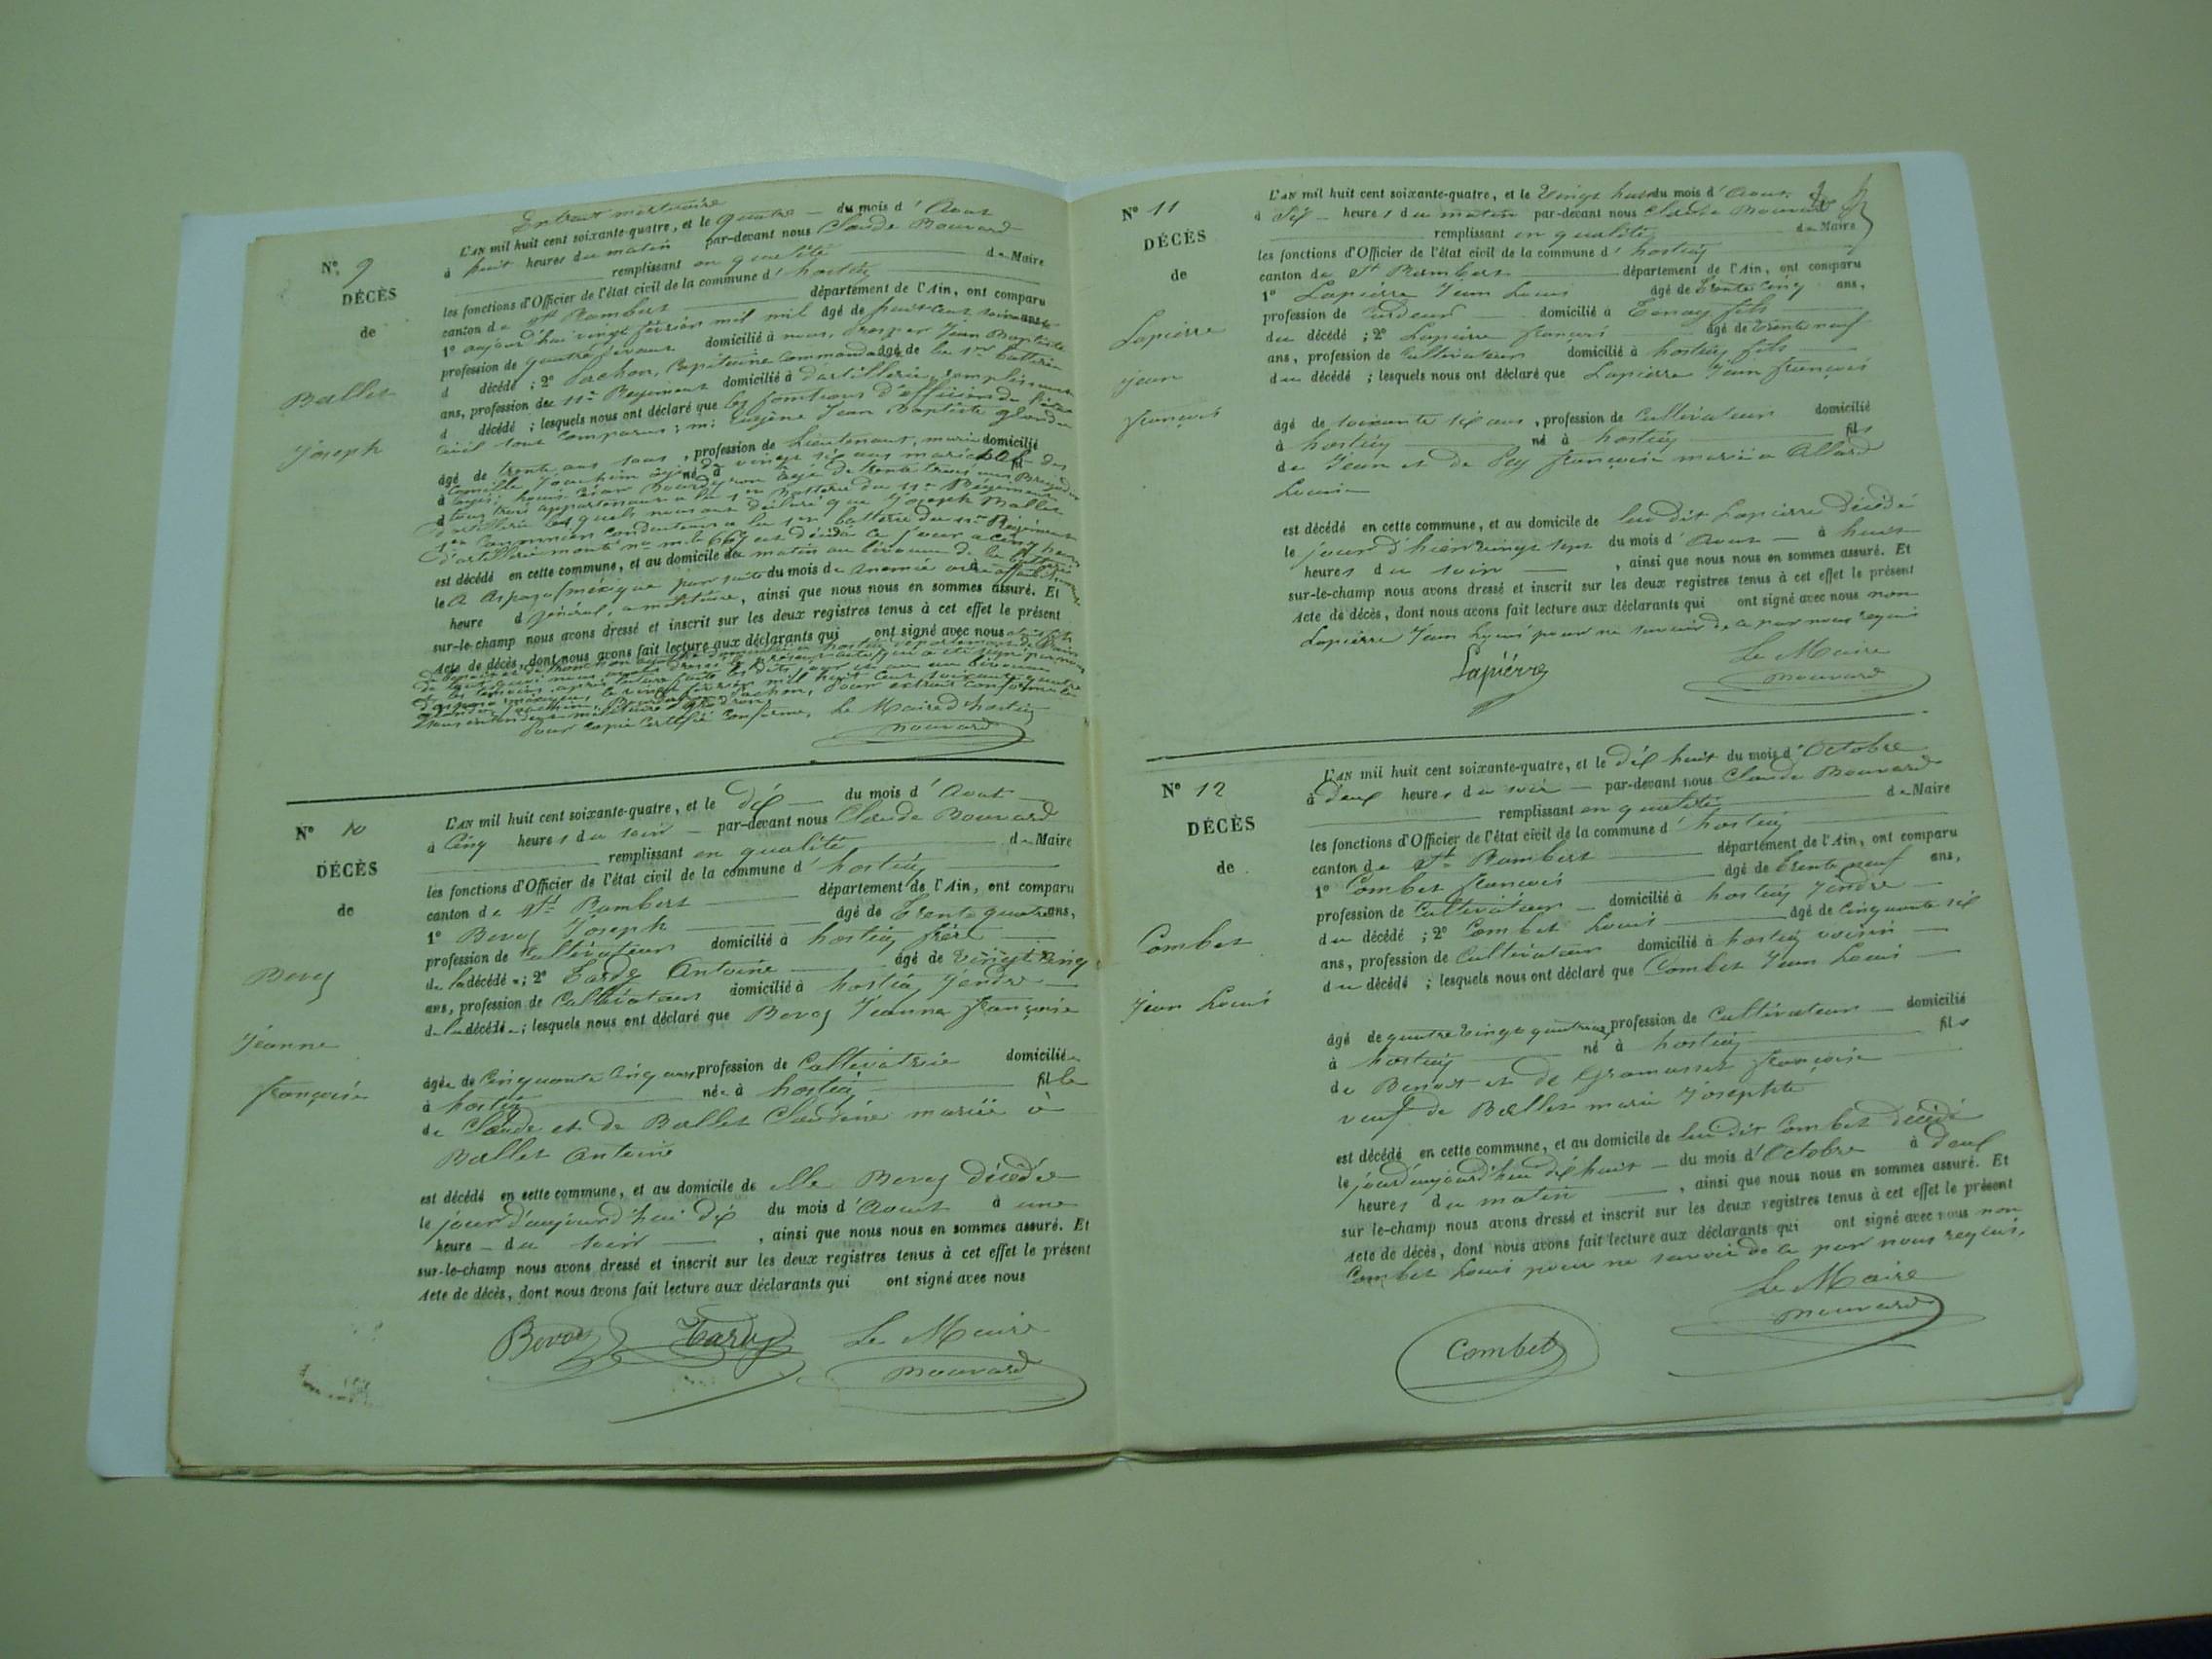 Nº 9
DÉCÈS
de
Ballet
Joseph
Extrait mortuaire
L'AN mil huit cent soixante-quatre, et le quatre du mois d'Aout
à huit heures du matin par-devant nous Claude Bouvard
remplissant en qualité de Maire
les fonctions d'Officier de l'état civil de la commune d'hostiaz
canton de St Rambert département de l'Ain, ont comparu
1º aujourd'hui vingt février mil âgé de huit cent soixante
profession de quatre devant domicilié à nous, Prosper Jean Baptiste
d décédé ; 2º Capitaine Commandant âgé de la 1re batterie
ans, profession de du 11e Régiment domicilié à d'artillerie, remplissant
d décédé ; lesquels nous ont déclaré que les fonctions d'officier de l'état
civil sont comparus ; Eugène Jean Baptiste
âgé de trente ans , profession de Lieutenant, domicilié
est décédé en cette commune, et au domicile de
le du mois de
heure d , ainsi que nous nous en sommes assuré. Et
sur-le-champ nous avons dressé et inscrit sur les deux registres tenus à cet effet le présent
Acte de décès, dont nous avons fait lecture aux déclarants qui ont signé avec nous
pour copie certifié conforme, Le Maire d'hostiaz
Bouvard
Nº 10
DÉCÈS
de
Bevoz
Jeanne
françoise
L'AN mil huit cent soixante-quatre, et le dix du mois d'Aout
à Cinq heures du soir par-devant nous Claude Bouvard
remplissant en qualité de Maire
les fonctions d'Officier de l'état civil de la commune d'hostiaz
canton de St Rambert département de l'Ain, ont comparu
1º Bevoz Joseph âgé de trente quatre ans,
profession de Cultivateur domicilié à hostiaz frère
de la décédée ; 2º Tardy Antoine âgé de vingt cinq
ans, profession de Cultivateur domicilié à hostiaz gendre
de la décédée ; lesquels nous ont déclaré que Bevoz Jeanne françoise
âgée de Cinquante Cinq ans profession de Cultivatrice domiciliée
à hostiaz née à hostiaz fille
de Claude et de Ballet Claudine mariée à
Ballet Antoine
est décédé en cette commune, et au domicile de elle Bevoz décédée
le jour d'aujourd'hui dix du mois d'Aout à une
heure du soir , ainsi que nous nous en sommes assuré. Et
sur-le-champ nous avons dressé et inscrit sur les deux registres tenus à cet effet le présent
Acte de décès, dont nous avons fait lecture aux déclarants qui ont signé avec nous
Bevoz Tardy Le Maire
Bouvard
Nº 11
DÉCÈS
de
Lapierre
jean
françois
L'AN mil huit cent soixante-quatre, et le vingt huit du mois d'Aout
à Six heures du matin par-devant nous Claude Bouvard
remplissant en qualité de Maire
les fonctions d'Officier de l'état civil de la commune d'hostiaz
canton de St Rambert département de l'Ain, ont comparu
1º Lapierre Jean Louis âgé de trente cinq ans,
profession de domicilié à Tenay fils
du décédé ; 2º Lapierre françois âgé de trente neuf
ans, profession de Cultivateur domicilié à hostiaz fils
du décédé ; lesquels nous ont déclaré que Lapierre Jean françois
âgé de soixante six ans , profession de Cultivateur domicilié
à hostiaz né à hostiaz fils
de Jean et de Pey françoise marié a Allard
Louise
est décédé en cette commune, et au domicile de lui dit Lapierre décédé
le jour d'hier vingt sept du mois d'Aout à huit
heures du soir , ainsi que nous nous en sommes assuré. Et
sur-le-champ nous avons dressé et inscrit sur les deux registres tenus à cet effet le présent
Acte de décès, dont nous avons fait lecture aux déclarants qui ont signé avec nous non
Lapierre Jean Louis pour ne savoir de ce par nous requis
Lapierre Le Maire
Bouvard
Nº 12
DÉCÈS
de
Combet
Jean Louis
L'AN mil huit cent soixante-quatre, et le dix huit du mois d'Octobre
à deux heures du soir par-devant nous Claude Bouvard
remplissant en qualité de Maire
les fonctions d'Officier de l'état civil de la commune d'hostiaz
canton de St Rambert département de l'Ain, ont comparu
1º Combet françois âgé de trente neuf ans,
profession de Cultivateur domicilié à hostiaz gendre
du décédé ; 2º Combet Louis âgé de Cinquante six
ans, profession de Cultivateur domicilié à hostiaz voisin
du décédé ; lesquels nous ont déclaré que Combet Jean Louis
âgé de quatre vingt quatre ans profession de Cultivateur domicilié
à hostiaz né à hostiaz fils
de Benoit et de Gramusset françoise
veuf de Ballet marie Josephte
est décédé en cette commune, et au domicile de lui dit Combet décédé
le jour d'aujourd'hui dix huit du mois d'Octobre à deux
heures du matin , ainsi que nous nous en sommes assuré. Et
sur le-champ nous avons dressé et inscrit sur les deux registres tenus à cet effet le présent
Acte de décès, dont nous avons fait lecture aux déclarants qui ont signé avec nous non
Combet Louis pour ne savoir de ce par nous requis.
Combet Le Maire
Bouvard